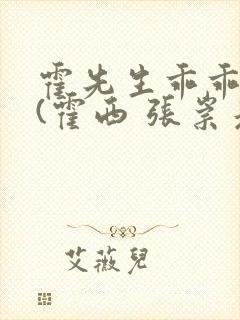 霍先生乖乖
(霍西 張崇
艾薇兒